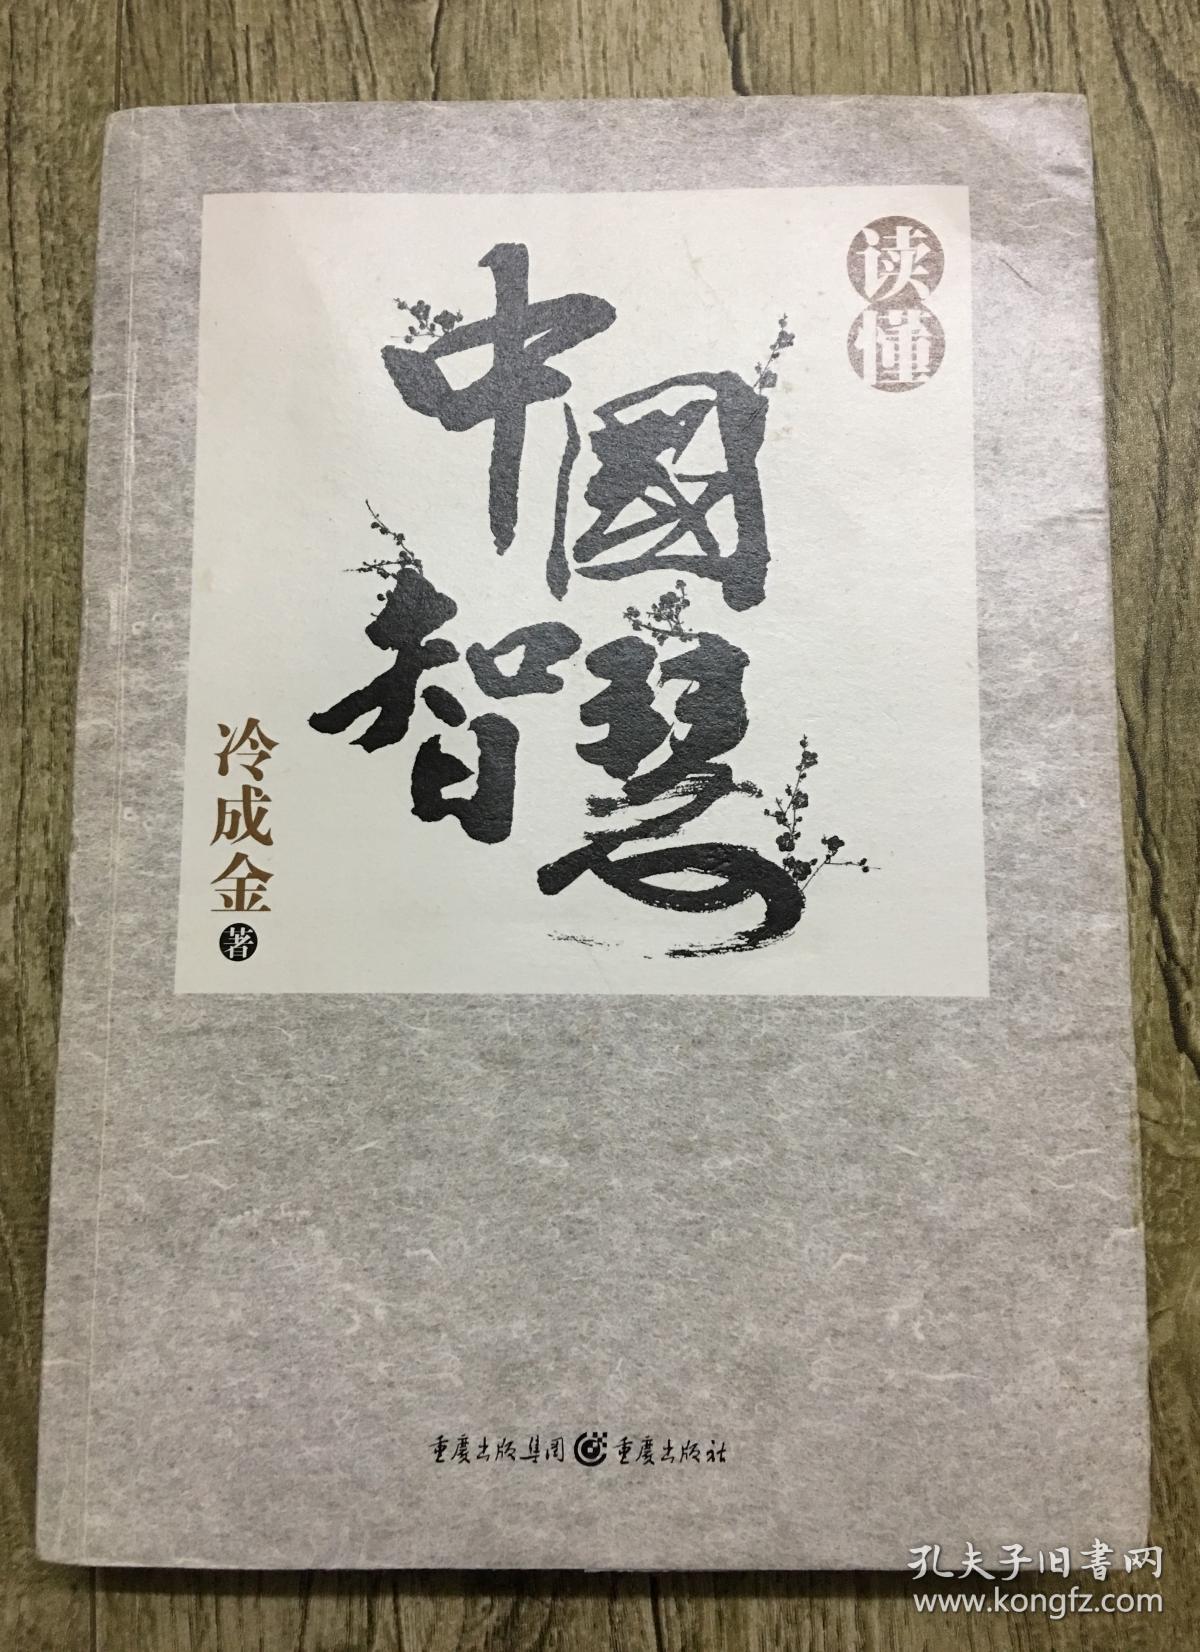 读懂
中國
智慧
冷成金 著
重庆出版集团 重庆出版社
孔夫子旧書网
www.kongfz.com